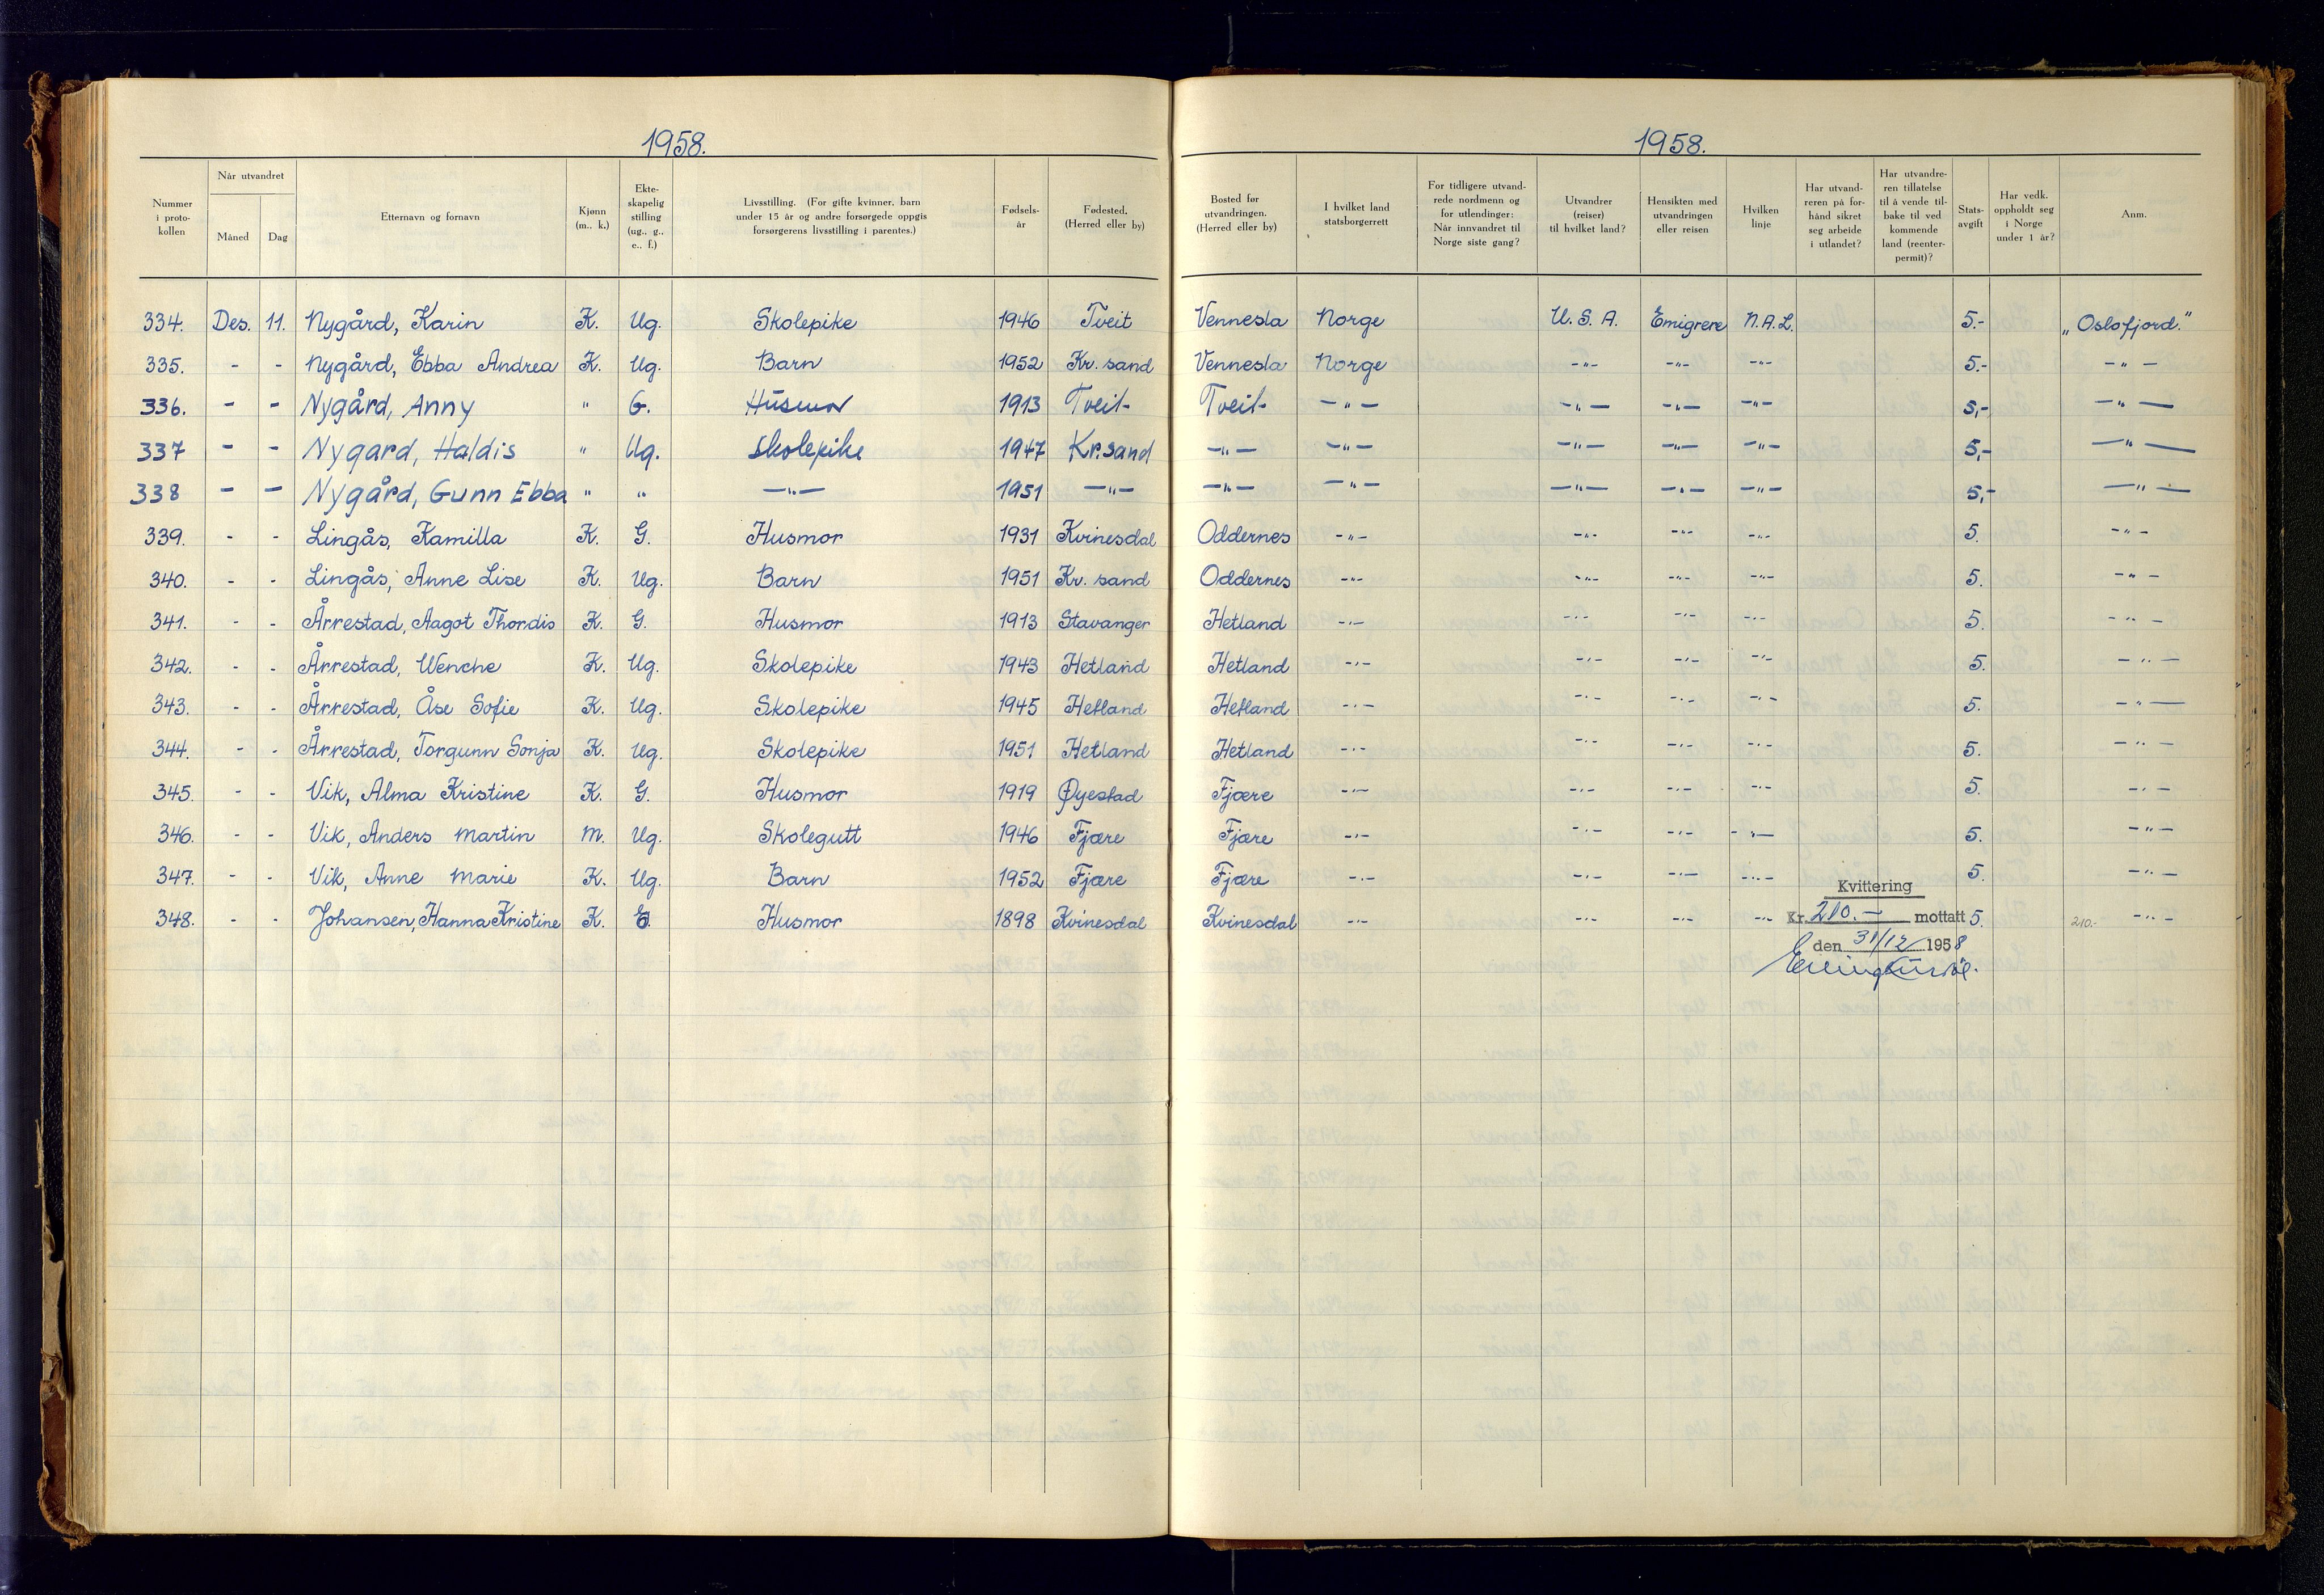 1958.
1958.
Nummer i proto-kollen | Når utvandret Måned | Dag | Etternavn og fornavn | Kjønn (m., k.) | Ekte-skapelig stilling (ug., g., e., f.) | Livsstilling. (For gifte kvinner, barn under 15 år og andre forsørgede oppgis forsørgerens livsstilling i parentes.) | Fødsels-år | Fødested. (Herred eller by) | Bosted før utvandringen. (Herred eller by) | I hvilket land statsborgerrett | For tidligere utvand-rede nordmenn og for utlendinger: Når innvandret til Norge siste gang? | Utvandrer (reiser) til hvilket land? | Hensikten med utvandringen eller reisen | Hvilken linje | Har utvand-reren på for-hånd sikret seg arbeide i utlandet? | Har utvandre-ren tillatelse til å vende til-bake til ved kommende land (reenter-permit)? | Stats-avgift | Har vedk. oppholdt seg i Norge under 1 år? | Anm.
334. Des. 11. Nygård, Karin K. Ug. Skolepike 1946 Tveit Vennesla Norge U.S.A. Emigrere N.A.L. 5.- „Oslofjord."
335. - - Nygård, Ebba Andrea K. Ug. Barn 1952 Kr. sand Vennesla Norge -"- -"- -"- 5.- -"-
336. - - Nygård, Anny " G. Husmor 1913 Tveit Tveit -"- -"- -"- -"- 5,- -"-
337 - - Nygard, Haldis " Ug. skolepike 1947 Kr.sand -"- -"- -"- -"- -"- 5,- -"-
338 - - Nygård, Gunn Ebba " " -"- 1951 -"- -"- -"- -"- -"- -"- 5,- -"-
339. - - Lingås, Kamilla K. G. Husmor 1931 Kvinesdal Oddernes -"- -"- -"- -"- 5. -"-
340. - - Lingås, Anne Lise K. Ug. Barn 1951 Kr. sand Oddernes -"- -"- -"- -"- 5. -"-
341. - - Årrestad, Aagot Thordis K. G. Husmor 1913 Stavanger Hetland -"- -"- -"- -"- 5. -"-
342. - - Årrestad, Wenche K. Ug. Skolepike 1943 Hetland Hetland -"- -"- -"- -"- 5. -"-
343. - - Årrestad, Åse Sofie K. Ug. Skolepike 1945 Hetland Hetland -"- -"- -"- -"- 5. -"-
344. - - Årrestad, Torgunn Sonja K. Ug. Skolepike 1951 Hetland Hetland -"- -"- -"- -"- 5. -"-
345. - - Vik, Alma Kristine K. G. Husmor 1919 Øyestad Fjære -"- -"- -"- -"- 5. -"-
346. - - Vik, Anders Martin M. Ug. Skolegutt 1946 Fjære Fjære -"- -"- -"- -"- 5. -"-
347. - - Vik, Anne Marie K. Ug. Barn 1952 Fjære Fjære -"- -"- -"- -"- 5. -"-
Kvittering
348. - - Johansen, Hanna Kristine K. E. Husmor 1898 Kvinesdal Kvinesdal -"- -"- -"- -"- Kr. 210.- mottatt 5. 210.- -"-
den 31/12 1958